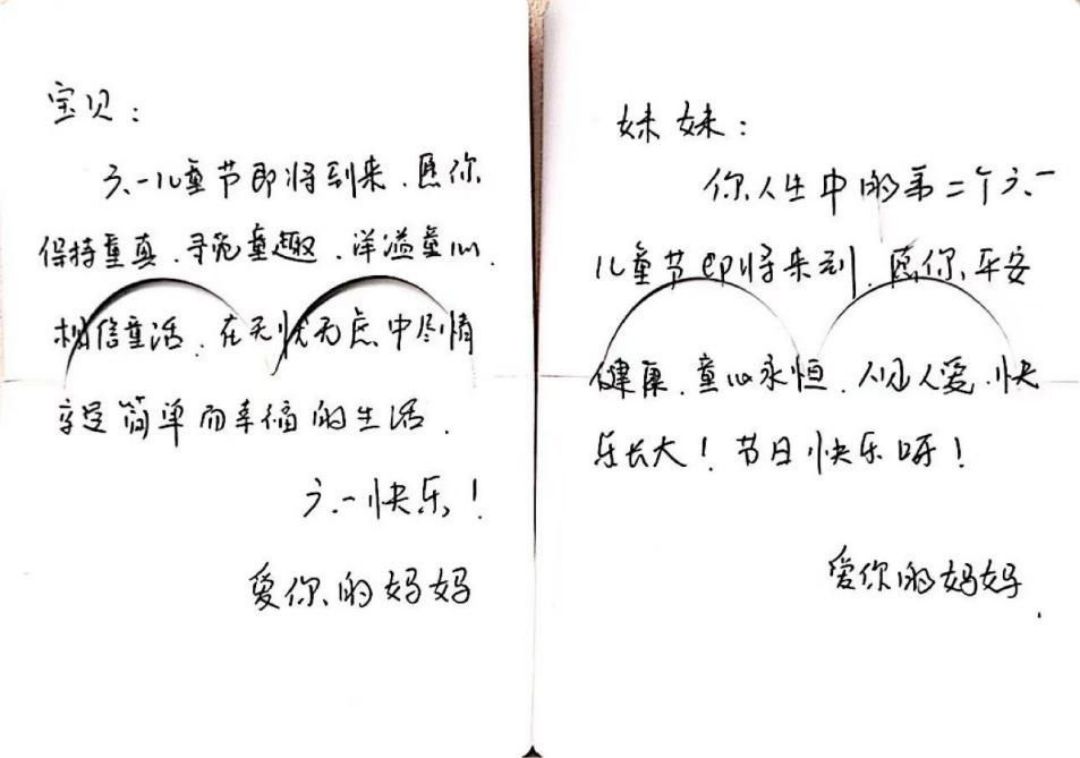 宝贝：
六一儿童节即将到来，愿你
保持童真，寻觅童趣，洋溢童心，
相信童话，在无忧无虑中尽情
享受简单而幸福的生活．
六一快乐！
爱你的妈妈
妹妹：
你人生中的第二个六一
儿童节即将来到，愿你平安
健康，童心永恒，人见人爱，快
乐长大！节日快乐呀！
爱你的妈妈．